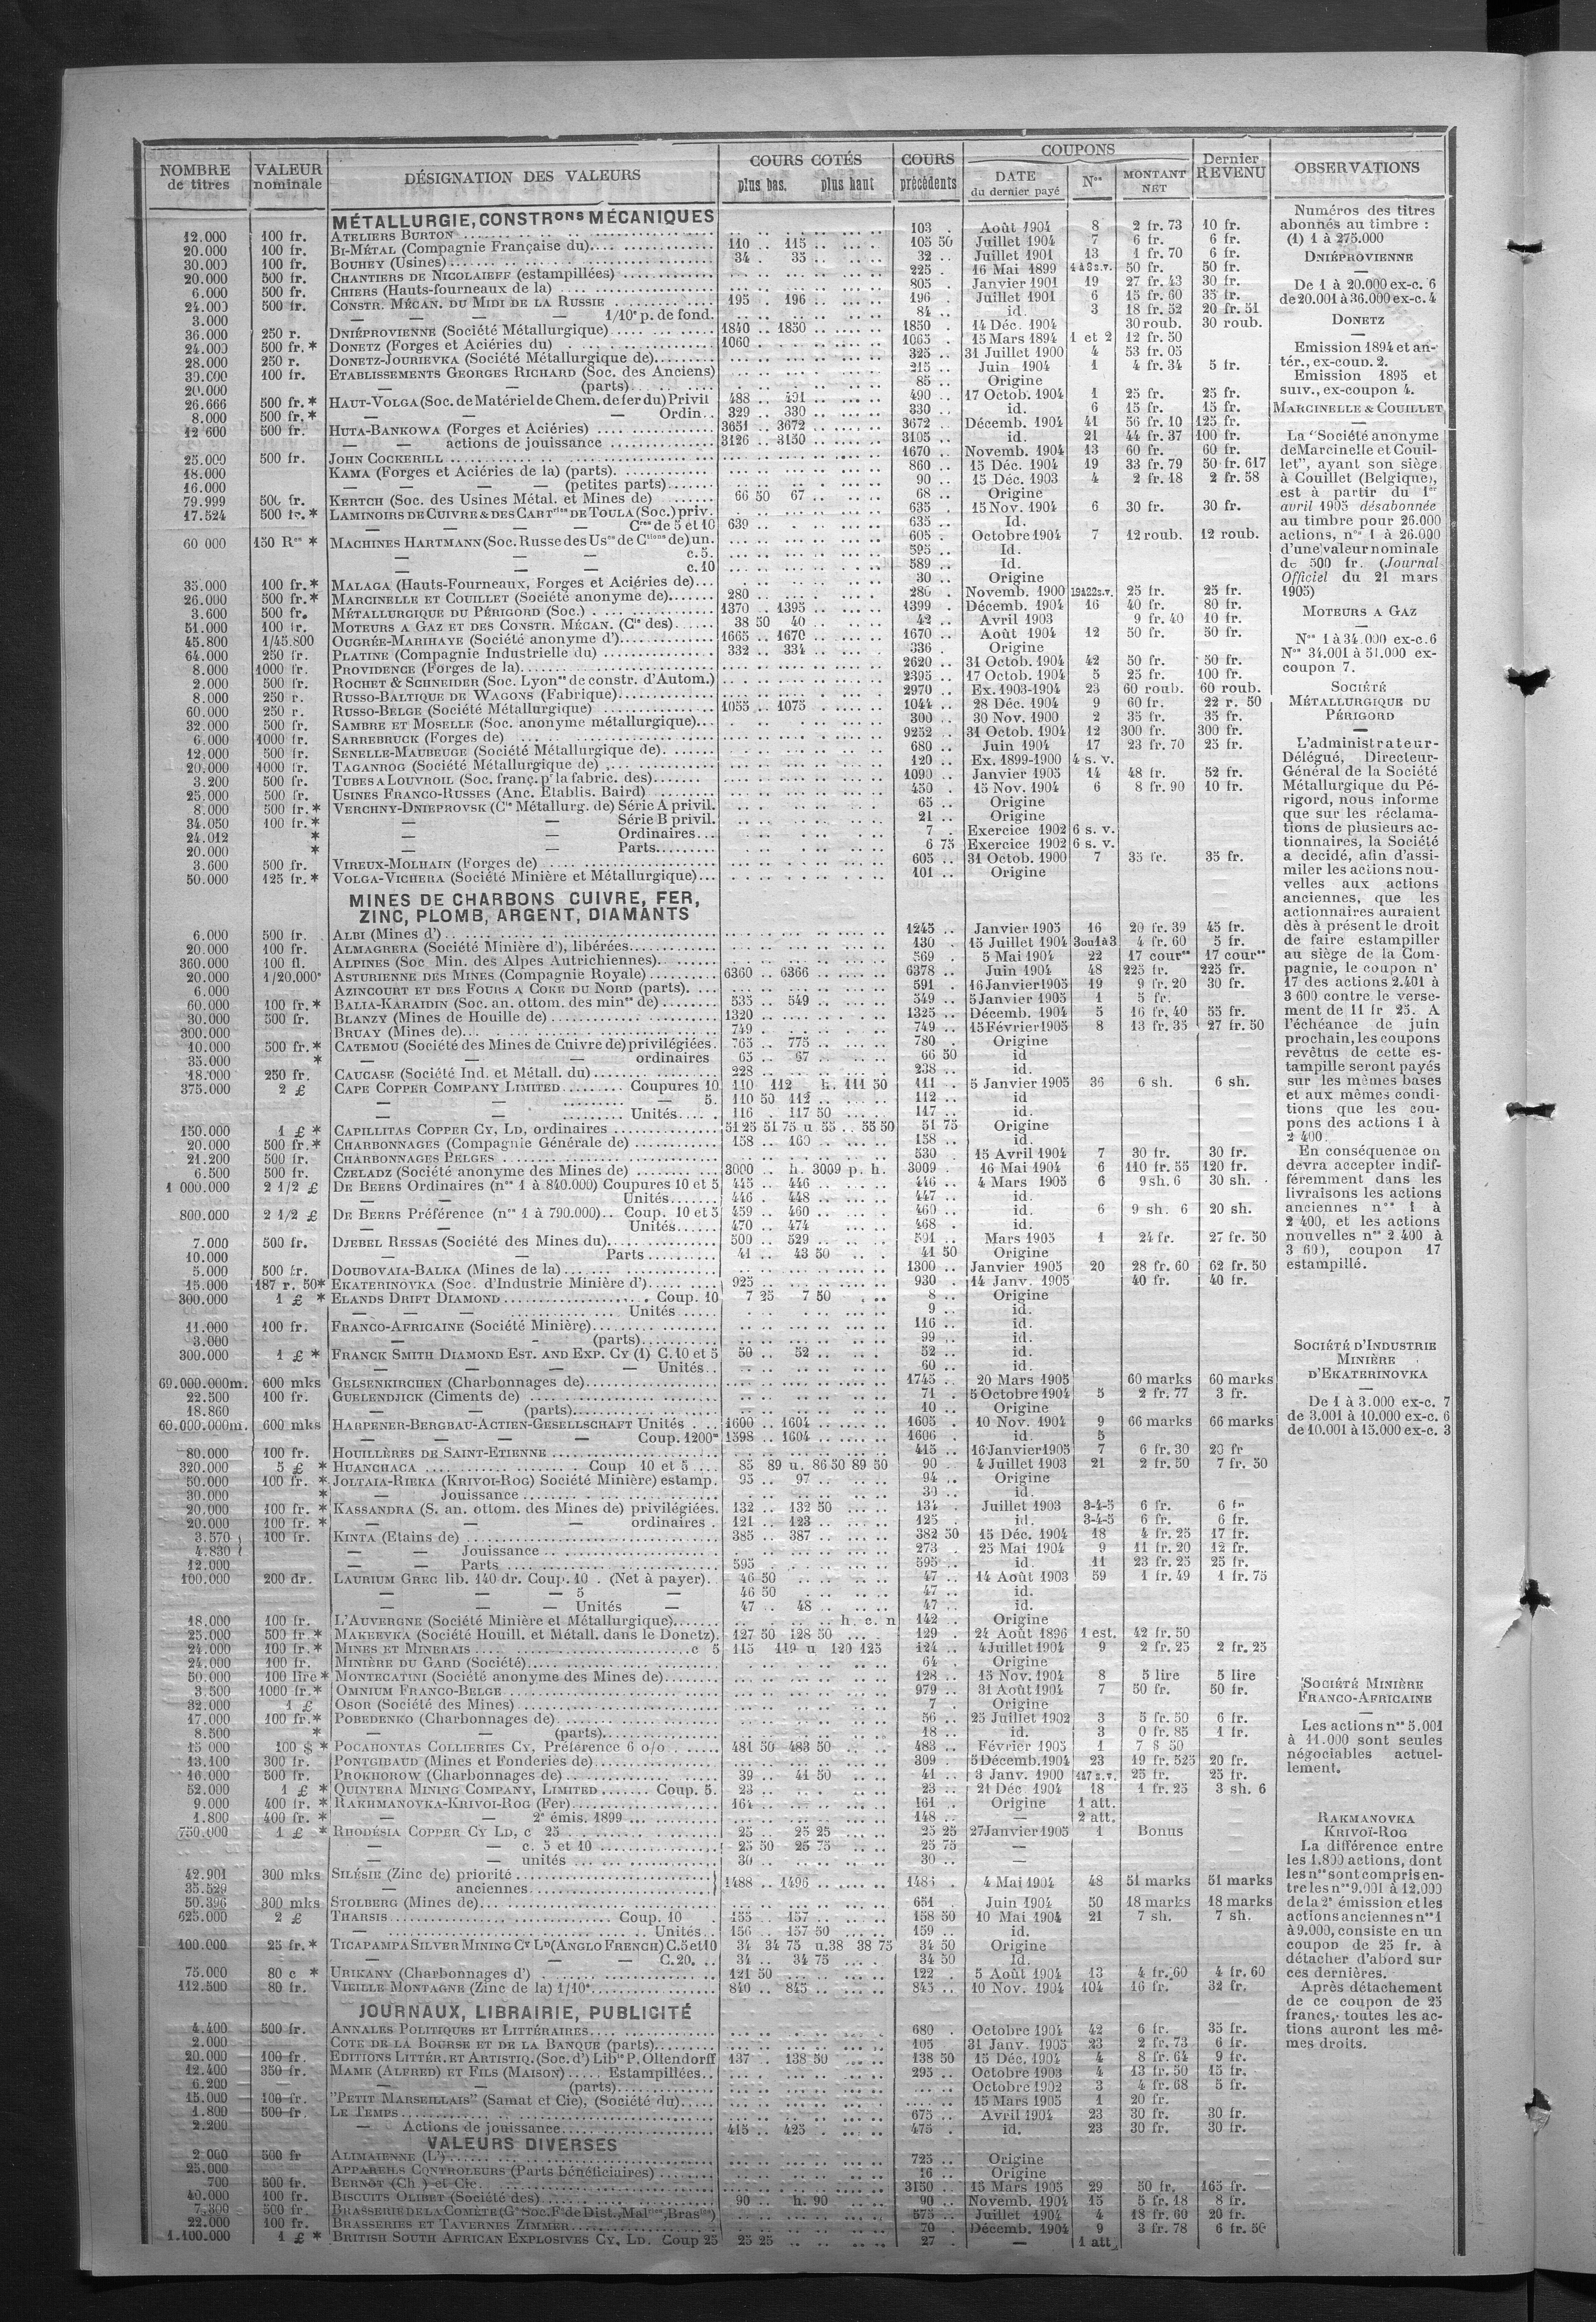 NOMBRE de titres | VALEUR nominale | DÉSIGNATION DES VALEURS | COURS COTÉS plus bas. plus haut | COURS précédents | COUPONS DATE du dernier payé | Nos | MONTANT NET | Dernier REVENU | OBSERVATIONS
MÉTALLURGIE, CONSTRons MÉCANIQUES
12.000 100 fr. ATELIERS BURTON 103 . Août 1904 8 2 fr. 73 10 fr.
20.000 100 fr. BI-MÉTAL (Compagnie Française du) 110 .. 115 .. 105 50 Juillet 1904 7 6 fr. 6 fr.
30.000 100 fr. BOUHEY (Usines) 34 . 35 .. 32 .. Juillet 1901 13 1 fr. 70 6 fr.
20.000 500 fr. CHANTIERS DE NICOLAIEFF (estampillées) 225 . 16 Mai 1899 1 à 8 s.v. 50 fr. 50 fr.
6.000 500 fr. CHIERS (Hauts-fourneaux de la) 805 . Janvier 1901 19 27 fr. 43 30 fr.
24.000 500 fr. CONSTR. MÉCAN. DU MIDI DE LA RUSSIE 195 . 196 . 196 . Juillet 1901 6 15 fr. 60 35 fr.
3.000 — — — — 1/10e p. de fond. 84 .. id. 3 18 fr. 52 20 fr. 51
36.000 250 r. DNIÉPROVIENNE (Société Métallurgique) 1840 .. 1850 .. 1850 . 14 Déc. 1904 30 roub. 30 roub.
24.000 500 fr.* DONETZ (Forges et Aciéries du) 1060 1065 . 15 Mars 1894 1 et 2 12 fr. 50
28.000 250 r. DONETZ-JOURIEVKA (Société Métallurgique de) 325 .. 31 Juillet 1900 4 53 fr. 05
30.000 100 fr. ETABLISSEMENTS GEORGES RICHARD (Soc. des Anciens) 215 .. Juin 1904 1 4 fr. 34 5 fr.
20.000 — — (parts) 85 .. Origine
26.666 500 fr.* HAUT-VOLGA (Soc. de Matériel de Chem. de fer du) Privil 488 .. 491 .. 490 .. 17 Octob. 1904 1 25 fr. 25 fr.
8.000 500 fr.* — — — Ordin. 329 .. 330 .. 330 .. id. 6 15 fr. 15 fr.
12 600 500 fr. HUTA-BANKOWA (Forges et Aciéries) 3651 .. 3672 .. 3672 . Décemb. 1904 41 56 fr. 10 125 fr.
— — actions de jouissance 3126 .. 3150 .. 3105 .. id. 21 44 fr. 37 100 fr.
25.000 500 fr. JOHN COCKERILL 1670 .. Novemb. 1904 13 60 fr. 60 fr.
18.000 KAMA (Forges et Aciéries de la) (parts) 860 .. 15 Déc. 1904 19 33 fr. 79 50 fr. 617
16.000 — — — — (petites parts) 90 .. 15 Déc. 1903 4 2 fr. 18 2 fr. 58
79.999 500 fr. KERTCH (Soc. des Usines Métal. et Mines de) 66 50 67 .. 68 .. Origine
17.524 500 fr.* LAMINOIRS DE CUIVRE & DES CARTries DE TOULA (Soc.) priv. 635 . 15 Nov. 1904 6 30 fr. 30 fr.
— — — — Cres de 5 et 10 639 .. 635 .. Id.
60 000 150 Res * MACHINES HARTMANN (Soc. Russe des Uses de Ctions de) un. 605 . Octobre 1904 7 12 roub. 12 roub.
— — — c. 5. 595 .. Id.
— — — c. 10 589 .. Id.
35.000 100 fr.* MALAGA (Hauts-Fourneaux, Forges et Aciéries de) 30 .. Origine
26.000 500 fr.* MARCINELLE ET COUILLET (Société anonyme de) 280 .. 280 . Novemb. 1900 19 à 22 s.v. 25 fr. 25 fr.
3.600 500 fr. MÉTALLURGIQUE DU PÉRIGORD (Soc.) 1370 . 1395 .. 1399 . Décemb. 1904 16 40 fr. 80 fr.
51.000 100 fr. MOTEURS A GAZ ET DES CONSTR. MÉCAN. (Cie des) 38 50 40 .. 42 .. Avril 1903 9 fr. 40 10 fr.
45.800 1/45.800 OUGRÉE-MARIHAYE (Société anonyme d') 1665 .. 1670 .. 1670 . Août 1904 12 50 fr. 50 fr.
64.000 250 fr. PLATINE (Compagnie Industrielle du) 332 .. 334 .. 336 . Origine
8.000 1000 fr. PROVIDENCE (Forges de la) 2620 .. 31 Octob. 1904 42 50 fr. 50 fr.
2.000 500 fr. ROCHET & SCHNEIDER (Soc. Lyonse de constr. d'Autom.) 2395 .. 17 Octob. 1904 5 25 fr. 100 fr.
8.000 250 r. RUSSO-BALTIQUE DE WAGONS (Fabrique) 2970 .. Ex. 1903-1904 23 60 roub. 60 roub.
60.000 250 r. RUSSO-BELGE (Société Métallurgique) 1055 .. 1075 1044 .. 28 Déc. 1904 9 60 fr. 22 r. 50
32.000 500 fr. SAMBRE ET MOSELLE (Soc. anonyme métallurgique) 300 .. 30 Nov. 1900 2 35 fr. 35 fr.
6.000 1000 fr. SARREBRUCK (Forges de) 9252 .. 31 Octob. 1904 12 300 fr. 300 fr.
12.000 500 fr. SENELLE-MAUBEUGE (Société Métallurgique de) 680 .. Juin 1904 17 23 fr. 70 25 fr.
20.000 1000 fr. TAGANROG (Société Métallurgique de) 120 .. Ex. 1899-1900 4 s. v.
3.200 500 fr. TUBES A LOUVROIL (Soc. franç. pr la fabric. des) 1090 .. Janvier 1905 14 48 fr. 52 fr.
25.000 500 fr. USINES FRANCO-RUSSES (Anc. Etablis. Baird) 450 . 15 Nov. 1904 6 8 fr. 90 10 fr.
8.000 500 fr.* VERCHNY-DNIEPROVSK (Cie Métallurg. de) Série A privil. 65 .. Origine
34.050 100 fr.* — — Série B privil. 21 .. Origine
24.012 * — — Ordinaires 7 . Exercice 1902 6 s. v.
20.000 * — — Parts 6 75 Exercice 1902 6 s. v.
3.600 500 fr. VIREUX-MOLHAIN (Forges de) 605 .. 31 Octob. 1900 7 35 fr. 35 fr.
50.000 125 fr.* VOLGA-VICHERA (Société Minière et Métallurgique) 101 .. Origine
MINES DE CHARBONS CUIVRE, FER,
ZINC, PLOMB, ARGENT, DIAMANTS
6.000 500 fr. ALBI (Mines d') 1245 .. Janvier 1905 16 20 fr. 39 45 fr.
20.000 100 fr. ALMAGRERA (Société Minière d'), libérées 130 . 15 Juillet 1904 3ou1à3 4 fr. 60 5 fr.
360.000 100 fl. ALPINES (Soc. Min. des Alpes Autrichiennes) 569 . 5 Mai 1904 22 17 courses 17 courses
20.000 1/20.000e ASTURIENNE DES MINES (Compagnie Royale) 6360 .. 6366 6378 .. Juin 1904 48 225 fr. 225 fr.
6.000 AZINCOURT ET DES FOURS A COKE DU NORD (parts) 591 . 16 Janvier 1905 19 9 fr. 20 30 fr.
60.000 100 fr.* BALIA-KARAIDIN (Soc. an. ottom. des mines de) 535 .. 549 .. 549 .. 5 Janvier 1905 1 5 fr.
30.000 500 fr. BLANZY (Mines de Houille de) 1320 .. 1325 .. Décemb. 1904 5 16 fr. 40 55 fr.
300.000 BRUAY (Mines de) 749 . 749 .. 15 Février 1905 8 13 fr. 35 27 fr. 50
10.000 500 fr.* CATEMOU (Société des Mines de Cuivre de) privilégiées 765 .. 775 .. 780 . Origine
35.000 * — — — ordinaires 65 .. 67 .. 66 50 id
18.000 250 fr. CAUCASE (Société Ind. et Métall. du) 228 .. 238 .. id.
375.000 2 £ CAPE COPPER COMPANY LIMITED Coupures 10 110 112 h. 111 50 111 . 5 Janvier 1905 36 6 sh. 6 sh.
— — — 5. 110 50 112 .. 112 .. id
— — Unités 116 . 117 50 117 .. id.
150.000 1 £ * CAPILLITAS COPPER CY, LD, ordinaires 51 25 51 75 u 55 .. 55 50 51 75 Origine
20.000 500 fr.* CHARBONNAGES (Compagnie Générale de) 158 .. 160 . 158 .. id.
21.200 500 fr. CHARBONNAGES BELGES 530 . 15 Avril 1904 7 30 fr. 30 fr.
6.500 500 fr. CZELADZ (Société anonyme des Mines de) 3000 .. h. 3009 p. h. 3009 . 16 Mai 1904 6 110 fr. 55 120 fr.
1 000.000 2 1/2 £ DE BEERS Ordinaires (nos 1 à 840.000) Coupures 10 et 5 445 .. 446 .. 446 .. 4 Mars 1905 6 9 sh. 6 30 sh.
— — Unités 446 . 448 .. 447 .. id.
800.000 2 1/2 £ DE BEERS Préférence (nos 1 à 790.000) Coup. 10 et 5 459 .. 460 .. 460 .. id. 6 9 sh. 6 20 sh.
— — Unités 470 .. 474 468 . id.
7.000 500 fr. DJEBEL RESSAS (Société des Mines du) 500 .. 529 .. 501 .. Mars 1905 1 24 fr. 27 fr. 50
10.000 — — Parts 41 .. 43 50 41 50 Origine
5.000 500 fr. DOUBOVAIA-BALKA (Mines de la) 1300 .. Janvier 1905 20 28 fr. 60 62 fr. 50
15.000 187 r. 50* EKATERINOVKA (Soc. d'Industrie Minière d') 925 .. 930 . 14 Janv. 1905 40 fr. 40 fr.
300.000 1 £ * ELANDS DRIFT DIAMOND Coup. 10 7 25 7 50 8 .. Origine
— — Unités 9 .. id.
11.000 100 fr. FRANCO-AFRICAINE (Société Minière) 116 .. id.
3.000 — - (parts) 99 .. id.
300.000 1 £ * FRANCK SMITH DIAMOND EST. AND EXP. CY (1) C. 10 et 5 50 .. 52 .. 52 .. id.
— — — — Unités 60 .. id.
69.000.000m. 600 mks GELSENKIRCHEN (Charbonnages de) 1745 .. 20 Mars 1905 60 marks 60 marks
22.500 100 fr. GUELENDJICK (Ciments de) 71 . 5 Octobre 1904 5 2 fr. 77 3 fr.
18.860 — — (parts) 10 .. Origine
60.000.000m. 600 mks HARPENER-BERGBAU-ACTIEN-GESELLSCHAFT Unités 1600 .. 1604 .. 1605 . 10 Nov. 1904 9 66 marks 66 marks
— — — Coup. 1200m 1598 .. 1604 .. 1606 . id. 5
80.000 100 fr. HOUILLÈRES DE SAINT-ETIENNE 445 .. 16 Janvier 1905 7 6 fr. 30 20 fr
320.000 5 £ * HUANCHACA Coup 10 et 5 85 89 u. 86 50 89 50 90 .. 4 Juillet 1903 21 2 fr. 50 7 fr. 50
50.000 100 fr. * JOLTAIA-RIEKA (KRIVOI-ROG) Société Minière) estamp. 95 .. 97 .. 94 .. Origine
30.000 * — Jouissance 30 .. id.
20.000 100 fr. * KASSANDRA (S. an. ottom. des Mines de) privilégiées 132 .. 132 50 134 . Juillet 1903 3-4-5 6 fr. 6 fr
20.000 100 fr. * — — — ordinaires 121 .. 123 .. 125 . id. 3-4-5 6 fr. 6 fr.
3.570 100 fr. KINTA (Etains de) 385 .. 387 .. 382 50 15 Déc. 1904 18 4 fr. 25 17 fr.
4.830 — — Jouissance 273 . 25 Mai 1904 9 11 fr. 20 12 fr.
12.000 — — Parts 595 . 595 .. id. 11 23 fr. 25 25 fr.
100.000 200 dr. LAURIUM GREC lib. 140 dr. Coup. 10 . (Net à payer) 46 50 47 .. 14 Août 1903 59 1 fr. 49 1 fr. 75
— — — 5 — 46 50 47 .. id.
— — — Unités — 47 .. 48 .. 47 .. id.
18.000 100 fr. L'AUVERGNE (Société Minière et Métallurgique) h. c. n 142 .. Origine
25.000 500 fr.* MAKEEVKA (Société Houill. et Métall. dans le Donetz) 127 50 128 50 129 . 24 Août 1896 1 est. 42 fr. 50
24.000 100 fr.* MINES ET MINERAIS c 5 115 119 u 120 125 124 .. 4 Juillet 1904 9 2 fr. 25 2 fr. 25
24.000 100 fr. MINIÈRE DU GARD (Société) 64 . Origine
50.000 100 lire* MONTECATINI (Société anonyme des Mines de) 128 .. 15 Nov. 1904 8 5 lire 5 lire
3.500 1000 fr.* OMNIUM FRANCO-BELGE 979 .. 31 Août 1904 7 50 fr. 50 fr.
32.000 1 £ OSOR (Société des Mines) 7 . Origine
17.000 100 fr.* POBEDENKO (Charbonnages de) 56 .. 25 Juillet 1902 3 5 fr. 50 6 fr.
8.500 * — — (parts) 18 .. id. 3 0 fr. 85 1 fr.
15 000 100 $ * POCAHONTAS COLLIERIES CY, Préférence 6 o/o 481 50 483 50 483 . Février 1905 1 7 $ 50
13.100 300 fr. PONTGIBAUD (Mines et Fonderies de) 309 . 5 Décemb. 1904 23 19 fr. 525 20 fr.
16.000 500 fr. PROKHOROW (Charbonnages de) 39 .. 41 50 41 .. 3 Janv. 1900 4à7 s.v. 25 fr. 25 fr.
52.000 1 £ * QUINTERA MINING COMPANY, LIMITED Coup. 5. 23 .. 23 .. 21 Déc. 1904 18 1 fr. 25 3 sh. 6
9.000 400 fr. * RAKHMANOVKA-KRIVOI-ROG (Fer) 164 .. 161 . Origine 1 att.
1.800 400 fr. * — — 2e émis. 1899 148 .. — 2 att.
750.000 1 £ * RHODÉSIA COPPER CY LD, c 25 25 .. 25 25 25 25 27 Janvier 1905 1 Bonus
— — c. 5 et 10 25 50 25 75 25 75 —
— — unités 30 .. 30 .. —
42.901 300 mks SILÉSIE (Zinc de) priorité 1488 .. 1496 .. 1486 . 4 Mai 1904 48 51 marks 51 marks
35.529 — anciennes
50.396 300 mks STOLBERG (Mines de) 651 Juin 1904 50 18 marks 18 marks
625.000 2 £ THARSIS Coup. 10 155 .. 157 .. 158 50 10 Mai 1904 21 7 sh. 7 sh.
— Unités 156 .. 157 50 159 .. id.
100.000 25 fr.* TICAPAMPA SILVER MINING CY LD (ANGLO FRENCH) C. 5 et 10 34 34 75 u. 38 38 75 34 50 Origine
— — — C. 20. 34 .. 34 75 34 50 Id.
75.000 80 c * URIKANY (Charbonnages d') 121 50 122 . 5 Août 1904 13 4 fr. 60 4 fr. 60
112.500 80 fr. VIEILLE MONTAGNE (Zinc de la) 1/10e 840 .. 845 .. 845 .. 10 Nov. 1904 104 16 fr. 32 fr.
JOURNAUX, LIBRAIRIE, PUBLICITÉ
4.400 500 fr. ANNALES POLITIQUES ET LITTÉRAIRES 680 . Octobre 1904 42 6 fr. 35 fr.
2.000 COTE DE LA BOURSE ET DE LA BANQUE (parts) 105 31 Janv. 1905 23 2 fr. 73 6 fr.
20.000 100 fr. EDITIONS LITTÉR. ET ARTISTIQ. (Soc. d') Libie P. Ollendorff 137 .. 138 50 138 50 15 Déc. 1904 4 8 fr. 64 9 fr.
12.400 350 fr. MAME (ALFRED) ET FILS (MAISON) Estampillées 295 .. Octobre 1903 4 13 fr. 50 15 fr.
6.200 — — (parts) Octobre 1902 3 4 fr. 68 5 fr.
15.000 100 fr. "PETIT MARSEILLAIS" (Samat et Cie), (Société du) 15 Mars 1905 1 20 fr.
1.800 500 fr. LE TEMPS 675 .. Avril 1904 23 30 fr. 30 fr.
2.200 — Actions de jouissance 415 .. 425 .. 475 . id. 23 30 fr. 30 fr.
VALEURS DIVERSES
2 000 500 fr ALIMAIENNE (L') 725 .. Origine
25.000 APPAREILS CONTROLEURS (Parts bénéficiaires) 16 .. Origine
700 500 fr. BERNOT (Ch.) et Cie 3150 .. 15 Mars 1905 29 50 fr. 165 fr.
40.000 100 fr. BISCUITS OLIBET (Société des) 90 .. h. 90 90 .. Novemb. 1904 15 5 fr. 18 8 fr.
7.300 500 fr. BRASSERIE DE LA COMÈTE 575 .. Juillet 1904 4 18 fr. 60 20 fr.
22.000 100 fr. BRASSERIES ET TAVERNES ZIMMER 70 . Décemb. 1904 9 3 fr. 78 6 fr. 50
1.100.000 1 £ * BRITISH SOUTH AFRICAN EXPLOSIVES CY, LD. Coup 25 25 25 27 . — 1 att.
Numéros des titres
abonnés au timbre :
(1) 1 à 275.000
DNIÉPROVIENNE
De 1 à 20.000 ex-c. 6
de 20.001 à 36.000 ex-c. 4
DONETZ
Emission 1894 et an-
tér., ex-coup. 2.
Emission 1895 et
suiv., ex-coupon 4.
MARCINELLE & COUILLET
La "Société anonyme
de Marcinelle et Couil-
let", ayant son siège
à Couillet (Belgique),
est à partir du 1er
avril 1905 désabonnée
au timbre pour 26.000
actions, nos 1 à 26.000
d'une valeur nominale
de 500 fr. (Journal
Officiel du 21 mars
1905)
MOTEURS A GAZ
Nos 1 à 34.000 ex-c. 6
Nos 34.001 à 51.000 ex-
coupon 7.
SOCIÉTÉ
MÉTALLURGIQUE DU
PÉRIGORD
L'administrateur-
Délégué, Directeur-
Général de la Société
Métallurgique du Pé-
rigord, nous informe
que sur les réclama-
tions de plusieurs ac-
tionnaires, la Société
a decidé, afin d'assi-
miler les actions nou-
velles aux actions
anciennes, que les
actionnaires auraient
dès à présent le droit
de faire estampiller
au siège de la Com-
pagnie, le coupon n°
17 des actions 2.401 à
3 600 contre le verse-
ment de 11 fr 25. A
l'échéance de juin
prochain, les coupons
revêtus de cette es-
tampille seront payés
sur les mêmes bases
et aux mêmes condi-
tions que les cou-
pons des actions 1 à
2 400.
En conséquence on
devra accepter indif-
féremment dans les
livraisons les actions
anciennes nos 1 à
2 400, et les actions
nouvelles nos 2 400 à
3 600, coupon 17
estampillé.
SOCIÉTÉ D'INDUSTRIE
MINIÈRE
D'EKATERINOVKA
De 1 à 3.000 ex-c. 7
de 3.001 à 10.000 ex-c. 6
de 10.001 à 15.000 ex-c. 3
SOCIÉTÉ MINIÈRE
FRANCO-AFRICAINE
Les actions nos 5.001
à 11.000 sont seules
négociables actuel-
lement.
RAKMANOVKA
KRIVOÏ-ROG
La différence entre
les 1.800 actions, dont
les nos sont compris en-
tre les nos 9.001 à 12.000
de la 2e émission et les
actions anciennes nos 1
à 9.000, consiste en un
coupon de 25 fr. à
détacher d'abord sur
ces dernières.
Après détachement
de ce coupon de 25
francs, toutes les ac-
tions auront les mê-
mes droits.